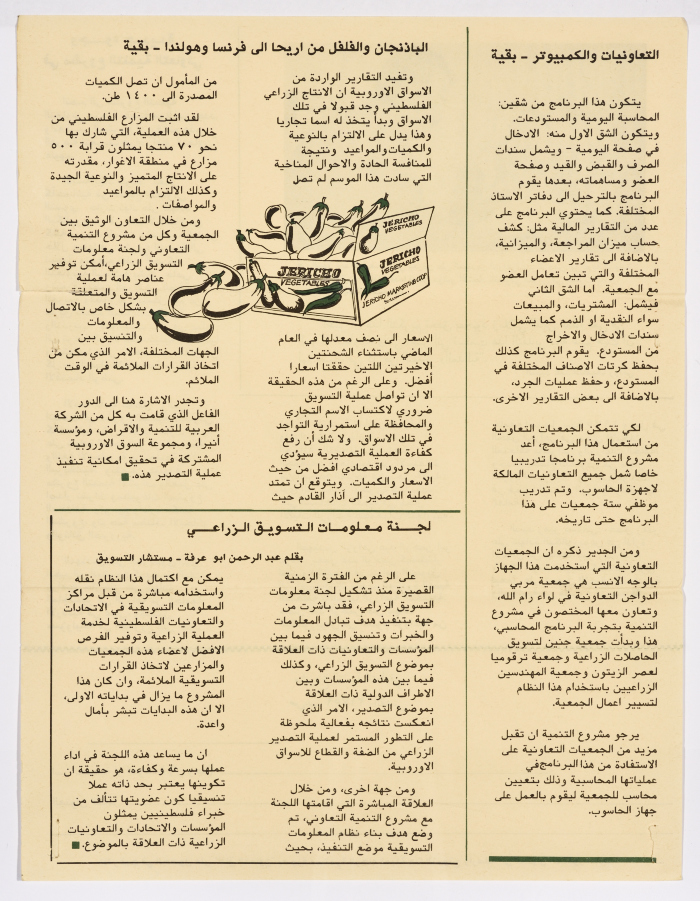 التعاونيات والكمبيوتر – بقية
يتكون هذا البرنامج من شقين:
المحاسبة اليومية والمستودعات.
ويتكون الشق الاول منه: الادخال
في صفحة اليومية – ويشمل سندات
الصرف والقبض والقيد وصفحة
العضو ومساهماته، بعدها يقوم
البرنامج بالترحيل الى دفاتر الاستاذ
المختلفة. كما يحتوي البرنامج على
عدد من التقارير المالية مثل: كشف
حساب ميزان المراجعة، والميزانية،
بالاضافة الى تقارير الاعضاء
المختلفة والتي تبين تعامل العضو
مع الجمعية. اما الشق الثاني
فيشمل: المشتريات، والمبيعات
سواء النقدية او الذمم كما يشمل
سندات الادخال والاخراج
من المستودع. يقوم البرنامج كذلك
بحفظ كرتات الاصناف المختلفة في
المستودع، وحفظ عمليات الجرد،
بالاضافة الى بعض التقارير الاخرى.
لكي تتمكن الجمعيات التعاونية
من استعمال هذا البرنامج، أعد
مشروع التنمية برنامجا تدريبيا
خاصا شمل جميع التعاونيات المالكة
لاجهزة الحاسوب. وتم تدريب
موظفي ستة جمعيات على هذا
البرنامج حتى تاريخه.
ومن الجدير ذكره ان الجمعيات
التعاونية التي استخدمت هذا الجهاز
بالوجه الانسب هي جمعية مربي
الدواجن التعاونية في لواء رام الله،
وتعاون معها المختصون في مشروع
التنمية بتجربة البرنامج المحاسبي،
هذا وبدأت جمعية جنين لتسويق
الحاصلات الزراعية وجمعية ترقوميا
لعصر الزيتون وجمعية المهندسين
الزراعيين باستخدام هذا النظام
لتسيير اعمال الجمعية.
يرجو مشروع التنمية ان تقبل
مزيد من الجمعيات التعاونية على
الاستفادة من هذا البرنامج في
عملياتها المحاسبية وذلك بتعيين
محاسب للجمعية ليقوم بالعمل على
جهاز الحاسوب.
الباذنجان والفلفل من اريحا الى فرنسا وهولندا – بقية
وتفيد التقارير الواردة من
الاسواق الاوروبية ان الانتاج الزراعي
الفلسطيني وجد قبولا في تلك
الاسواق وبدأ يتخذ له اسما تجاريا
وهذا يدل على الالتزام بالنوعية
والكميات والمواعيد ونتيجة
للمنافسة الحادة والاحوال المناخية
التي سادت هذا الموسم لم تصل
JERICHO
VEGETABLES
JERICHO
VEGETABLES
JERICHO
VEGETABLES
JERICHO MARKETING COOP
الاسعار الى نصف معدلها في العام
الماضي باستثناء الشحنتين
الاخيرتين اللتين حققتا اسعارا
أفضل. وعلى الرغم من هذه الحقيقة
الا ان تواصل عملية التسويق
ضروري لاكتساب الاسم التجاري
والمحافظة على استمرارية التواجد
في تلك الاسواق. ولا شك أن رفع
كفاءة العملية التصديرية سيؤدي
الى مردود اقتصادي افضل من حيث
الاسعار والكميات. ويتوقع ان تمتد
عملية التصدير الى آذار القادم حيث
من المأمول ان تصل الكميات
المصدرة الى ١٤٠٠ طن.
لقد اثبت المزارع الفلسطيني من
خلال هذه العملية، التي شارك بها
نحو ٧٠ منتجا يمثلون قرابة ٥٠٠
مزارع في منطقة الاغوار، مقدرته
على الانتاج المتميز والنوعية الجيدة
وكذلك الالتزام بالمواعيد
والمواصفات.
ومن خلال التعاون الوثيق بين
الجمعية وكل من مشروع التنمية
التعاوني ولجنة معلومات
التسويق الزراعي،أمكن توفير
عناصر هامة لعملية
التسويق والمتعلقة
بشكل خاص بالاتصال
والمعلومات
والتنسيق بين
الجهات المختلفة، الامر الذي مكن من
اتخاذ القرارات الملائمة في الوقت
الملائم.
وتجدر الاشارة هنا الى الدور
الفاعل الذي قامت به كل من الشركة
العربية للتنمية والاقراض، ومؤسسة
أنيرا، ومجموعة السوق الاوروبية
المشتركة في تحقيق امكانية تنفيذ
عملية التصدير هذه.
لجنة معلومات التسويق الزراعي
بقلم عبد الرحمن ابو عرفة – مستشار التسويق
على الرغم من الفترة الزمنية
القصيرة منذ تشكيل لجنة معلومات
التسويق الزراعي، فقد باشرت من
جهة بتنفيذ هدف تبادل المعلومات
والخبرات وتنسيق الجهود فيما بين
المؤسسات والتعاونيات ذات العلاقة
بموضوع التسويق الزراعي، وكذلك
فيما بين هذه المؤسسات وبين
الاطراف الدولية ذات العلاقة
بموضوع التصدير، الامر الذي
انعكست نتائجه بفعالية ملحوظة
على التطور المستمر لعملية التصدير
الزراعي من الضفة والقطاع للاسواق
الاوروبية.
ومن جهة اخرى، ومن خلال
العلاقة المباشرة التي اقامتها اللجنة
مع مشروع التنمية التعاوني، تم
وضع هدف بناء نظام المعلومات
التسويقية موضع التنفيذ، بحيث
يمكن مع اكتمال هذا النظام نقله
واستخدامه مباشرة من قبل مراكز
المعلومات التسويقية في الاتحادات
والتعاونيات الفلسطينية لخدمة
العملية الزراعية وتوفير الفرص
الافضل لاعضاء هذه الجمعيات
والمزارعين لاتخاذ القرارات
التسويقية الملائمة، وان كان هذا
المشروع ما يزال في بداياته الاولى،
الا ان هذه البدايات تبشر بأمال
واعدة.
ان ما يساعد هذه اللجنة في اداء
عملها بسرعة وكفاءة، هو حقيقة ان
تكوينها يعتبر بحد ذاته عملا
تنسيقيا كون عضويتها تتألف من
خبراء فلسطينيين يمثلون
المؤسسات والاتحادات والتعاونيات
الزراعية ذات العلاقة بالموضوع.